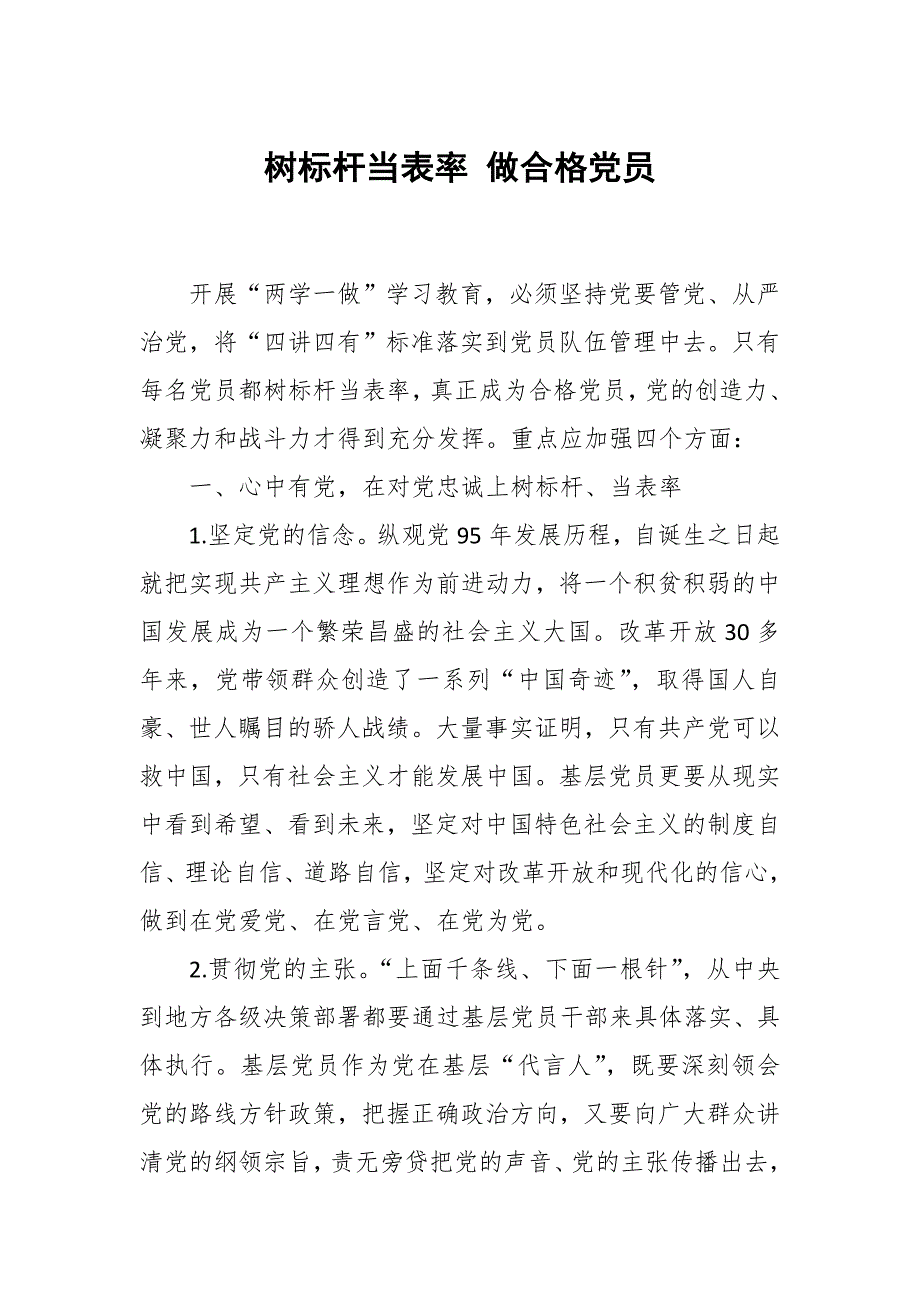 树标杆当表率 做合格党员
开展“两学一做”学习教育，必须坚持党要管党、从严
治党，将“四讲四有”标准落实到党员队伍管理中去。只有
每名党员都树标杆当表率，真正成为合格党员，党的创造力、
凝聚力和战斗力才得到充分发挥。重点应加强四个方面：
一、心中有党，在对党忠诚上树标杆、当表率
1.坚定党的信念。纵观党 95 年发展历程，自诞生之日起
就把实现共产主义理想作为前进动力，将一个积贫积弱的中
国发展成为一个繁荣昌盛的社会主义大国。改革开放 30 多
年来，党带领群众创造了一系列“中国奇迹”，取得国人自
豪、世人瞩目的骄人战绩。大量事实证明，只有共产党可以
救中国，只有社会主义才能发展中国。基层党员更要从现实
中看到希望、看到未来，坚定对中国特色社会主义的制度自
信、理论自信、道路自信，坚定对改革开放和现代化的信心，
做到在党爱党、在党言党、在党为党。
2.贯彻党的主张。“上面千条线、下面一根针”，从中央
到地方各级决策部署都要通过基层党员干部来具体落实、具
体执行。基层党员作为党在基层“代言人”，既要深刻领会
党的路线方针政策，把握正确政治方向，又要向广大群众讲
清党的纲领宗旨，责无旁贷把党的声音、党的主张传播出去，